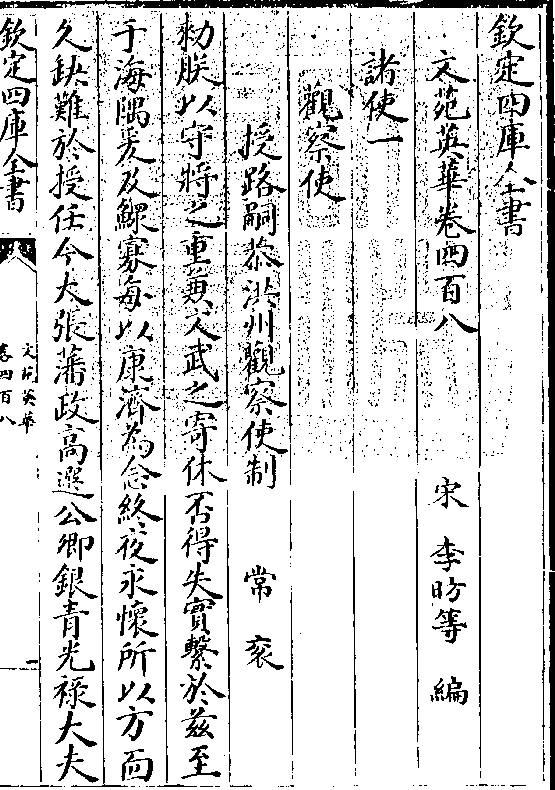 欽定四庫全書
文苑英華卷四百八
宋 李昉等 編
諸使一
觀察使
授路嗣恭洪州觀察使制 常袞
勅朕以守將之重兼文武之寄休否得失實繫於兹至
于海隅爰及鰥寡每以康濟為念終夜永懷所以方面
久缺難於授任今大張藩政高選公卿銀青光禄大夫
欽定四庫全書
文苑英華
卷四百八
一